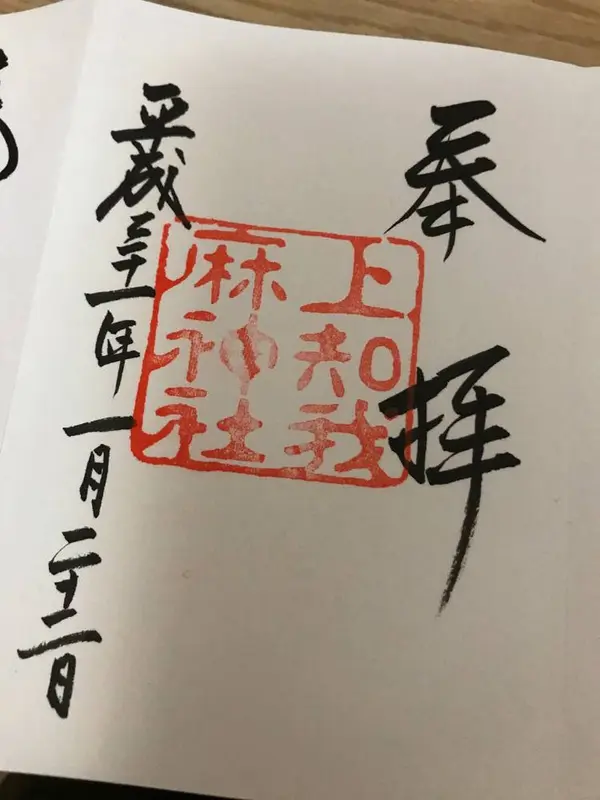 奉拝
上知我
麻神社
平成三十一年一月二十二日